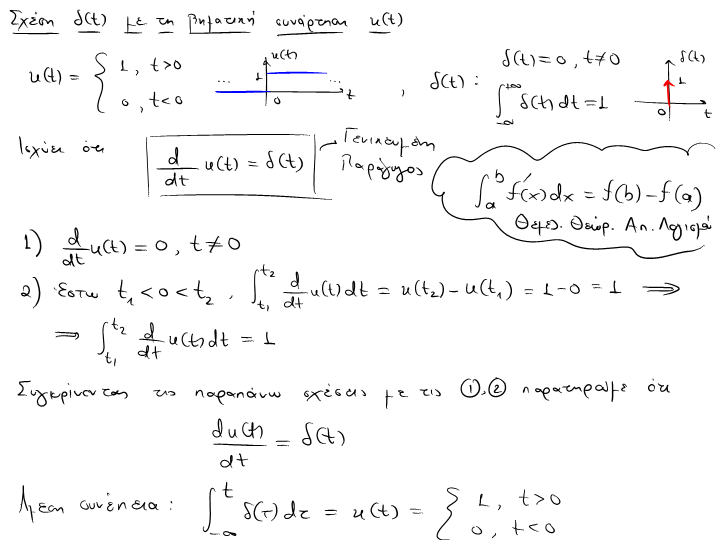 Σχέση δ(t) με τη βηματική συνάρτηση u(t)
u(t) = { 1, t>0
0, t<0
... 1 u(t) 0 ... t
, δ(t) : δ(t) = 0, t≠0
∫_{-∞}^{+∞} δ(t) dt = 1
δ(t) 1 0 t
Ισχύει ότι d/dt u(t) = δ(t) → Γενικευμένη Παράγωγος
∫_a^b f'(x)dx = f(b) - f(a)
Θεμελ. Θεώρ. Απ. Λογισμού
1) d/dt u(t) = 0, t≠0
2) Έστω t₁ < 0 < t₂, ∫_{t₁}^{t₂} d/dt u(t) dt = u(t₂) - u(t₁) = 1 - 0 = 1 ⟹
⟹ ∫_{t₁}^{t₂} d/dt u(t) dt = 1
Συγκρίνοντας τις παραπάνω σχέσεις με τις ①,② παρατηρούμε ότι
du(t)/dt = δ(t)
Άμεση συνέπεια : ∫_{-∞}^{t} δ(τ) dτ = u(t) = { 1, t>0
0, t<0